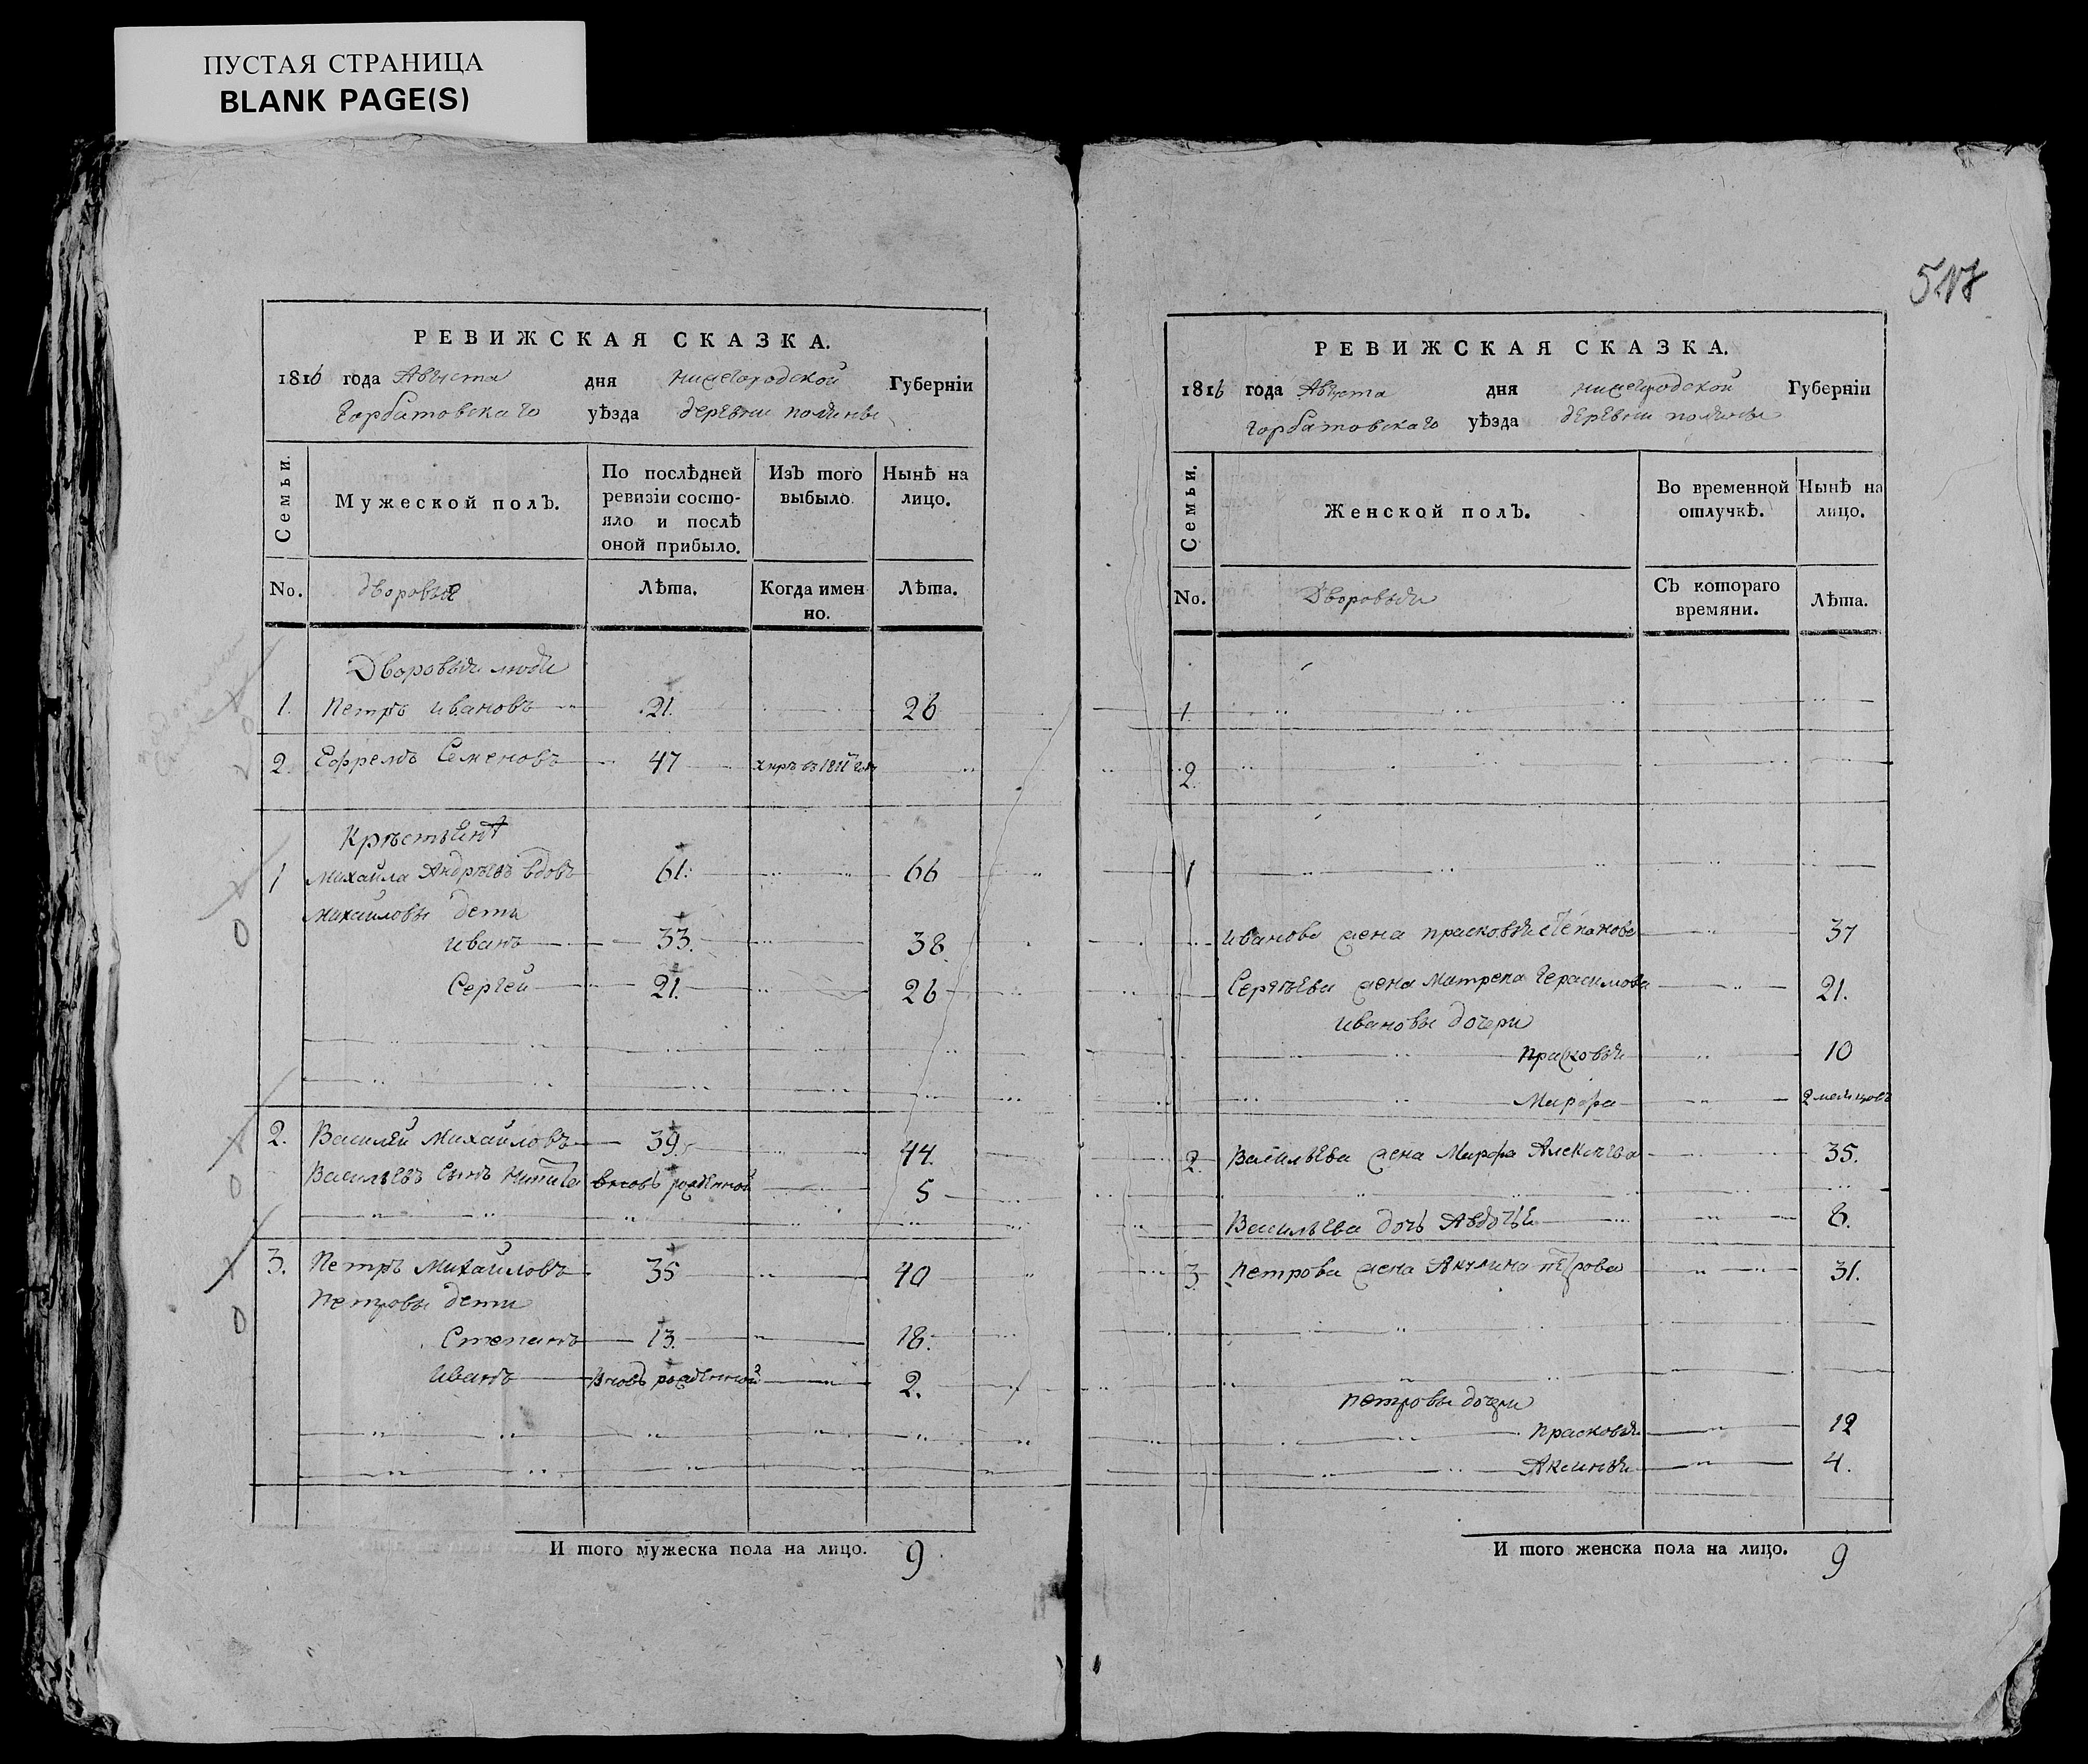 ПУСТАЯ СТРАНИЦА
BLANK PAGE(S)
РЕВИЖСКАЯ СКАЗКА.
1816 года Августа дня нижегородской Губерніи
Горбатовскаго уѣзда деревни
Семьи.
Мужеской полъ.
По послѣдней ревизіи состояло и послѣ оной прибыло.
Изъ того выбыло
Нынѣ на лицо.
No. дворовыя Лѣта. Когда именно. Лѣта.
Дворовыя люди
1. Петръ Ивановъ 21. 26
2. Ефремъ Семеновъ 47
Крѣстьянѣ
1 Михайла Андрѣевъ вдовъ 61. 66
Михайловы дети
Иванъ 33. 38
Сергей 21. 26
2. Василей Михайловъ 39. 44.
Васильевъ сынъ Никита вновь рожденной 5
3. Петръ Михайловъ 35 40
Петровы дети
Степанъ 13. 18.
Иванъ вновь рожденной 2.
И того мужеска пола на лицо. 9
РЕВИЖСКАЯ СКАЗКА.
1816 года Августа дня нижегородской Губерніи
Горбатовскаго уѣзда деревни
Семьи.
Женской полъ.
Во временной отлучкѣ.
Нынѣ на лицо.
No. Дворовыя Съ котораго времяни. Лѣта.
1
2.
1
Иванова жена прасковья Степанова 37
Сергѣева жена Матрена Герасимова 21.
Ивановы дочери
Прасковья 10
Марфа 2 месяцовъ
2. Васильева жена Марфа Алексѣева 35.
Васильева дочь Авдотья 8.
3 Петрова жена Акулина петрова 31.
петровы дочери
Прасковья 12
Аксинья 4.
И того женска пола на лицо. 9